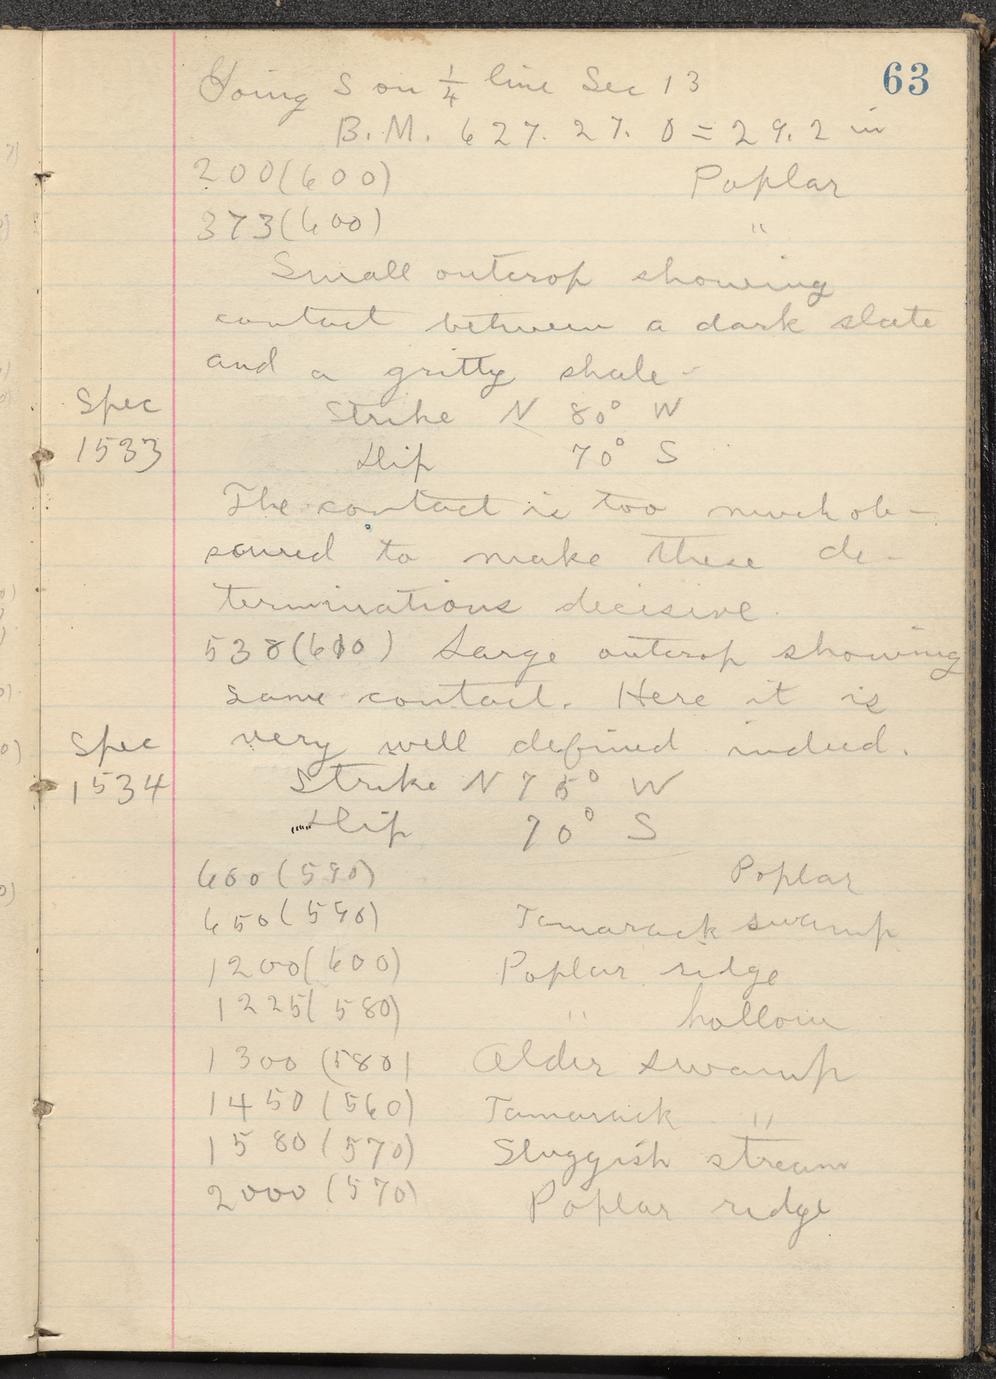 63
Going S on 1/4 line Sec 13
B.M. 627. 27. 0 = 29.2 in
200(600) Poplar
373(600) "
Small outcrop showing
contact between a dark slate
and a gritty shale -
Spec
1533
Strike N 80° W
Dip 70° S
The contact is too much ob-
scured to make these de-
terminations decisive.
538(600) Large outcrop showing
same contact. Here it is
very well defined indeed.
Spec
1534
Strike N 75° W
Dip 70° S
600(590) Poplar
650(590) Tamarack swamp
1200(600) Poplar ridge
1225(580) " hollow
1300 (580) Alder swamp
1450 (560) Tamarack "
1580 (570) Sluggish stream
2000 (570) Poplar ridge